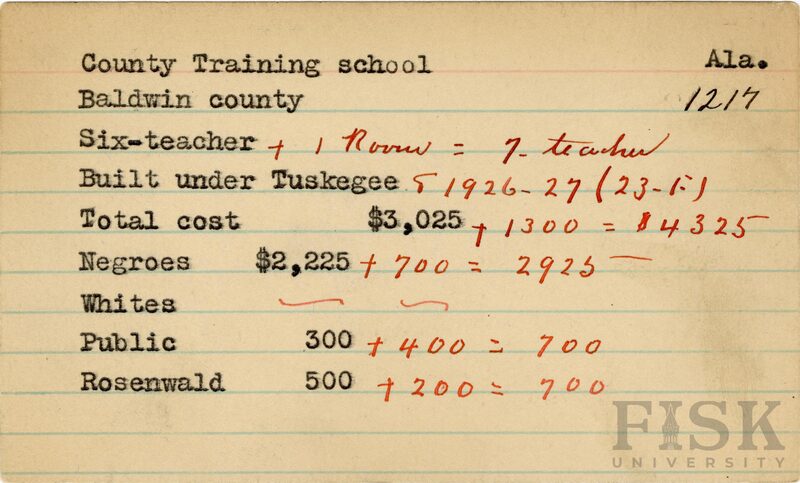 County Training school Ala.
Baldwin county 1217
Six-teacher + 1 Room = 7-teacher
Built under Tuskegee & 1926-27 (23-E)
Total cost $3,025 + 1300 = $4325
Negroes $2,225 + 700 = 2925
Whites
Public 300 + 400 = 700
Rosenwald 500 + 200 = 700
FISK
UNIVERSITY